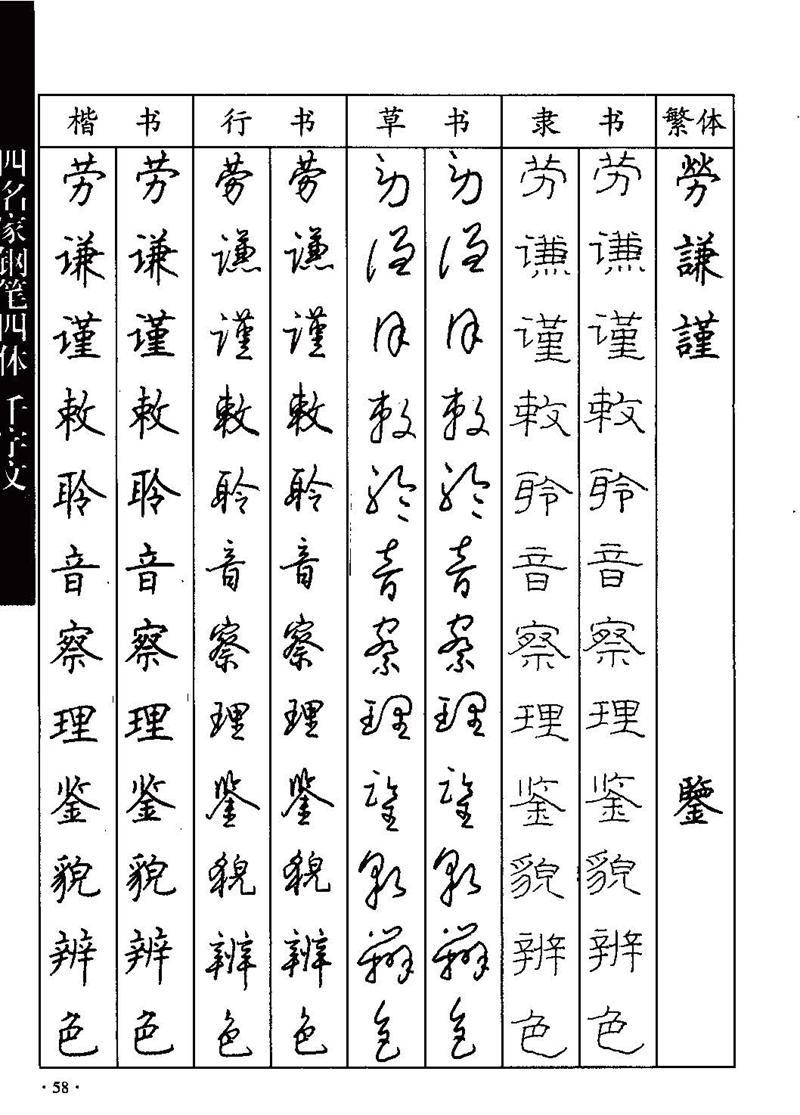 四名家钢笔四体 千字文
楷书 行书 草书 隶书 繁体
劳 劳 劳 劳 劳 劳 劳 劳 勞
谦 谦 谦 谦 谦 谦 谦 谦 謙
谨 谨 谨 谨 谨 谨 谨 谨 謹
敕 敕 敕 敕 敕 敕 敕 敕
聆 聆 聆 聆 聆 聆 聆 聆
音 音 音 音 音 音 音 音
察 察 察 察 察 察 察 察
理 理 理 理 理 理 理 理
鉴 鉴 鉴 鉴 鉴 鉴 鉴 鉴 鑒
貌 貌 貌 貌 貌 貌 貌 貌
辨 辨 辨 辨 辨 辨 辨 辨
色 色 色 色 色 色 色 色
·58·